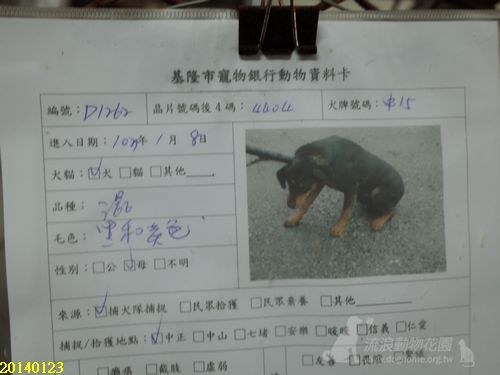 基隆市寵物銀行動物資料卡
編號：D1262 晶片號碼後4碼：4404 犬牌號碼：中15
進入日期：103年1月8日
犬貓：☑犬 □貓 □其他
品種：混
毛色：黑和黃色
性別：□公 ☑母 □不明
來源：☑捕犬隊捕捉 □民眾拾獲 □民眾棄養 □其他
捕捉/拾獲地點：☑中正 □中山 □七堵 □安樂 □暖暖 □信義 □仁愛
□截肢 □虛弱 □友善
流浪動物花園
www.doghome.org.tw
20140123